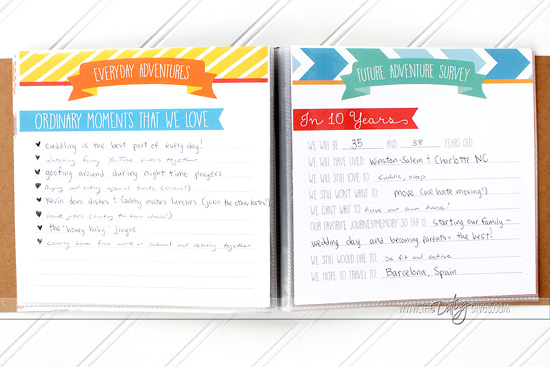 EVERYDAY ADVENTURES
ORDINARY MOMENTS THAT WE LOVE
cuddling is the best part of every day!
watching funny YouTube videos together
goofing around during night time prayers
Buying and eating special treats
Kevin does dishes & Gabby makes lunches (jobs the other hates!)
the "honey baby" jingle
Coming home from work or school and relaxing together
FUTURE ADVENTURE SURVEY
In 10 Years
WE WILL BE 35 AND 38 YEARS OLD
WE WILL HAVE LIVED: Winston-Salem & Charlotte NC
WE WILL STILL LOVE TO: cuddle, sleep
WE STILL WON'T WANT TO: move (we hate moving!)
WE CAN'T WAIT TO: have our own home!
OUR FAVORITE JOURNEY/MEMORY SO FAR IS: starting our family-
wedding day and becoming parents = the best!
WE STILL WOULD LIKE TO: be fit and active
WE HOPE TO TRAVEL TO: Barcelona, Spain
www.THEDatingDIVAS.COM